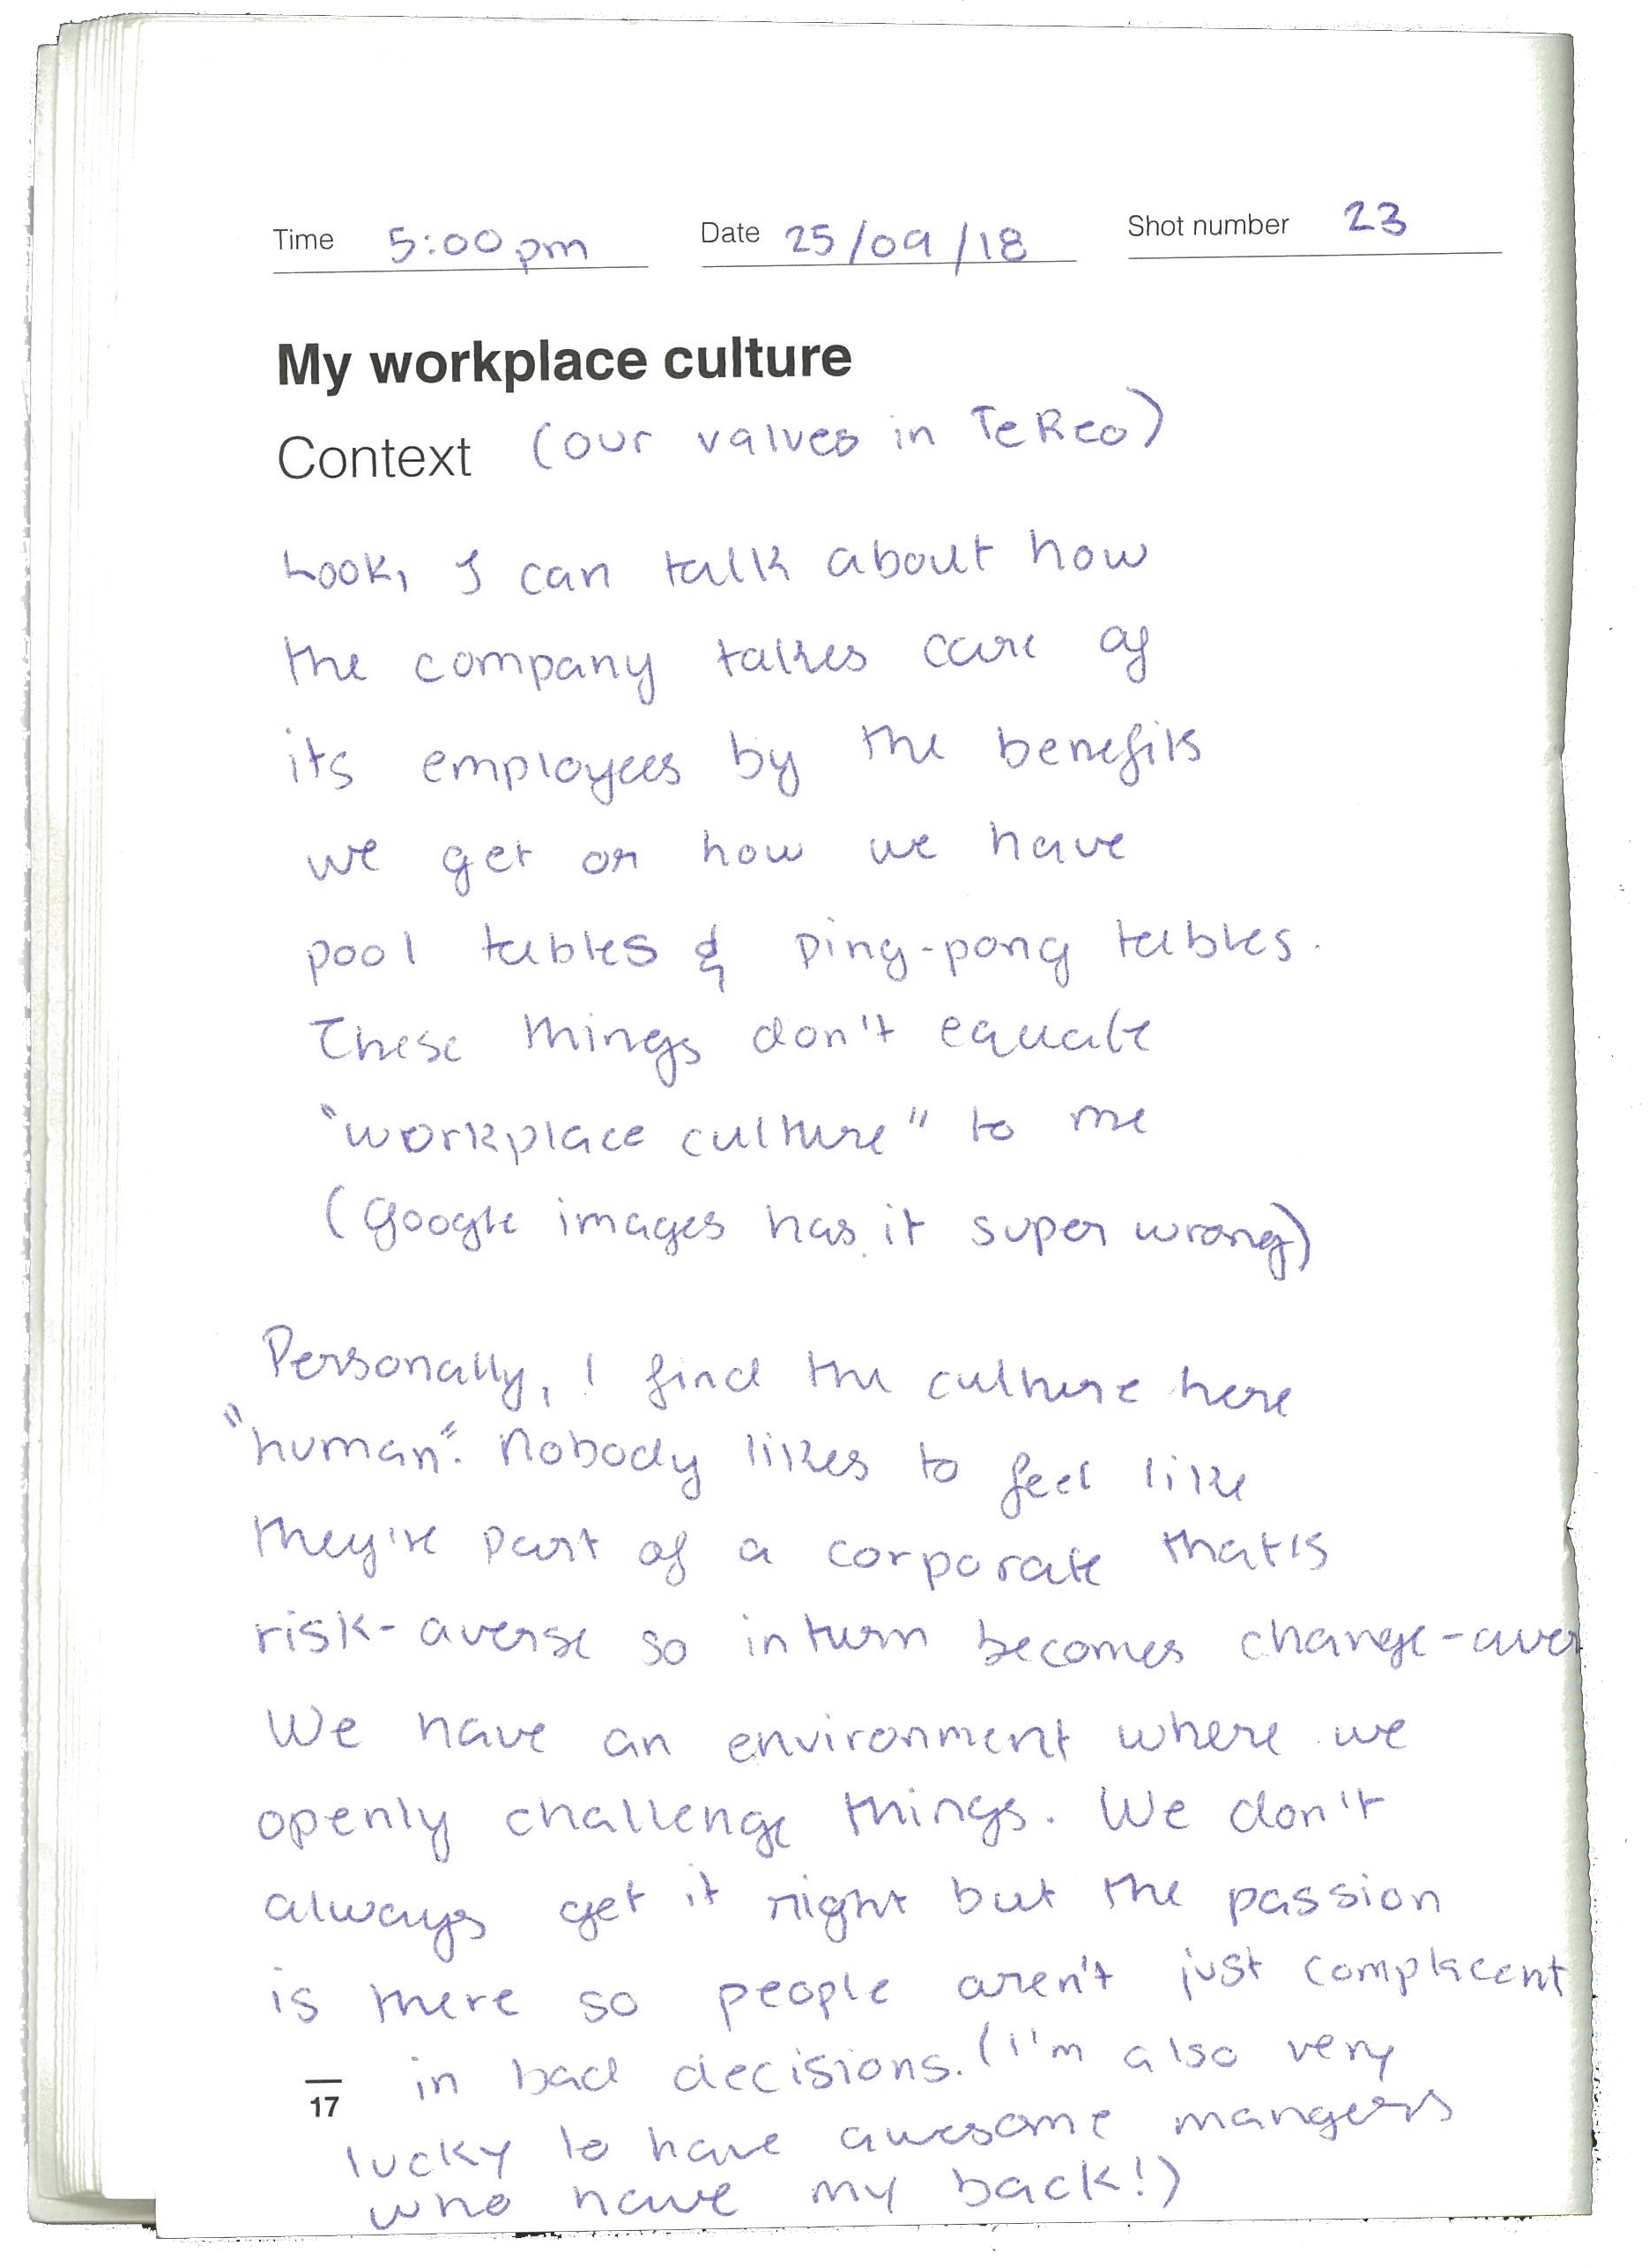 Time 5:00pm Date 25/09/18 Shot number 23
My workplace culture
Context (our values in Te Reo)
Look, I can talk about how
the company takes care of
its employees by the benefits
we get or how we have
pool tables & ping-pong tables.
These things don't equate
"workplace culture" to me
(Google images has it super wrong)
Personally, I find the culture here
"human". Nobody likes to feel like
they're part of a corporate that's
risk-averse so in turn becomes change-aver
We have an environment where we
openly challenge things. We don't
always get it right but the passion
is there so people aren't just complacent
in bad decisions. (I'm also very
17
lucky to have awesome mangers
who have my back!)